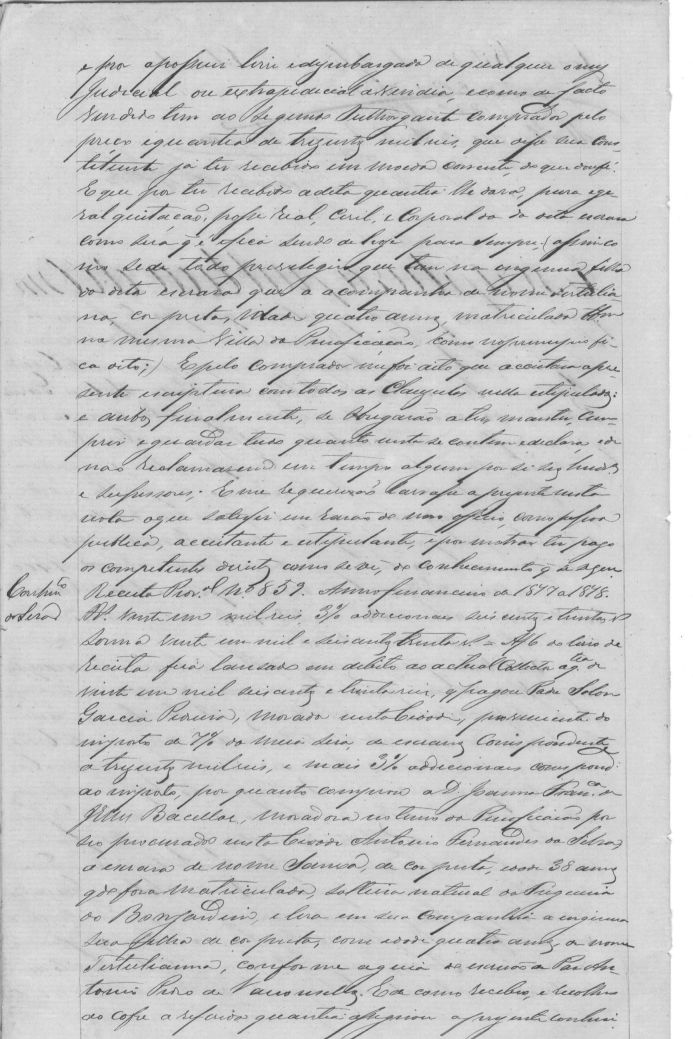 e por a possuir livre e desembargada de qualquer onus
Judicial ou extrajudicial à vendia, e como de facto
vendido tem ao segundo Outhorgante comprador pelo
preço e quantia de trezentos mil reis, que disse sua cons
tituinte já ter recebido em moeda corrente, do que dou fé.
E que por ter recebido a dita quantia lhe dava, pura e ge
ral quitação, posse real, Civil, e corporal da dita escrava
como sua q' é e fica sendo de hoje para sempre. (assim co
mo cede todo previlegio que tem na ingenua filha
da dita escrava que a acompanha de nome Tertulia
na, cor preta, idade quatro annos, matriculada
na mesma Villa da Purificação, como no principio fi
ca dito;) E pelo comprador me foi dito que acceitava a pre
sente escriptura com todas as Clausulas nella estipuladas:
e ambos finalmente, se obrigarão a ter, manter, cum-
prir e guardar tudo quanto nesta se contem e declara, e de
não reclamarem em tempo algum por si seus herdeiros
e sucessores. E me requererão lavrasse a presente nesta
nota o que satisfiz em razão de meo officio como pessoa
publica, acceitante e estipulante, e por mostrar ter pago
os competentes direitos como se vê, do conhecimento q' se segue.
Conhim.to
da Sisa
Receita Prov.al N.º 859. Anno financeiro de 1877 a 1878.
Rs. vinte um mil reis, 3% addicionaes seiscentos e trinta rs
somma vinte um mil e seiscentos trinta rs. = A f 6 do livro de
receita fica lansado em debito ao actual Collector a q.tia de
vinte um mil seiscentos e trinta reis, q' pagou Padre Solon
Garcia Pedreira, morador nesta Cidade, proveniente do
imposto de 7% da meia sisa de escravos Correspondente
a trezentos mil reis, e mais 3% addicionaes correspond:
ao imposto, por quanto comprou a D. Joanna Fran.ca de
Jesus Bacellar, moradora no termo da Purificação por
seo procurador nesta Cidade Antonio Fernandes da Silva,
a escrava de nome Sancha, de cor preta, idade 38 annos
q'do fora matriculada, solteira natural da Freguezia
do Bom Jardim, e leva em sua companhia a ingenua
sua filha de cor preta, com idade quatro annos de nome
Tertulianna, conforme a guia do escrivão Paulo An-
tonio Pires de Vasconcellos. E de como recebeu, e recolheu
ao Cofre a referida quantia assignou o presente conheci-